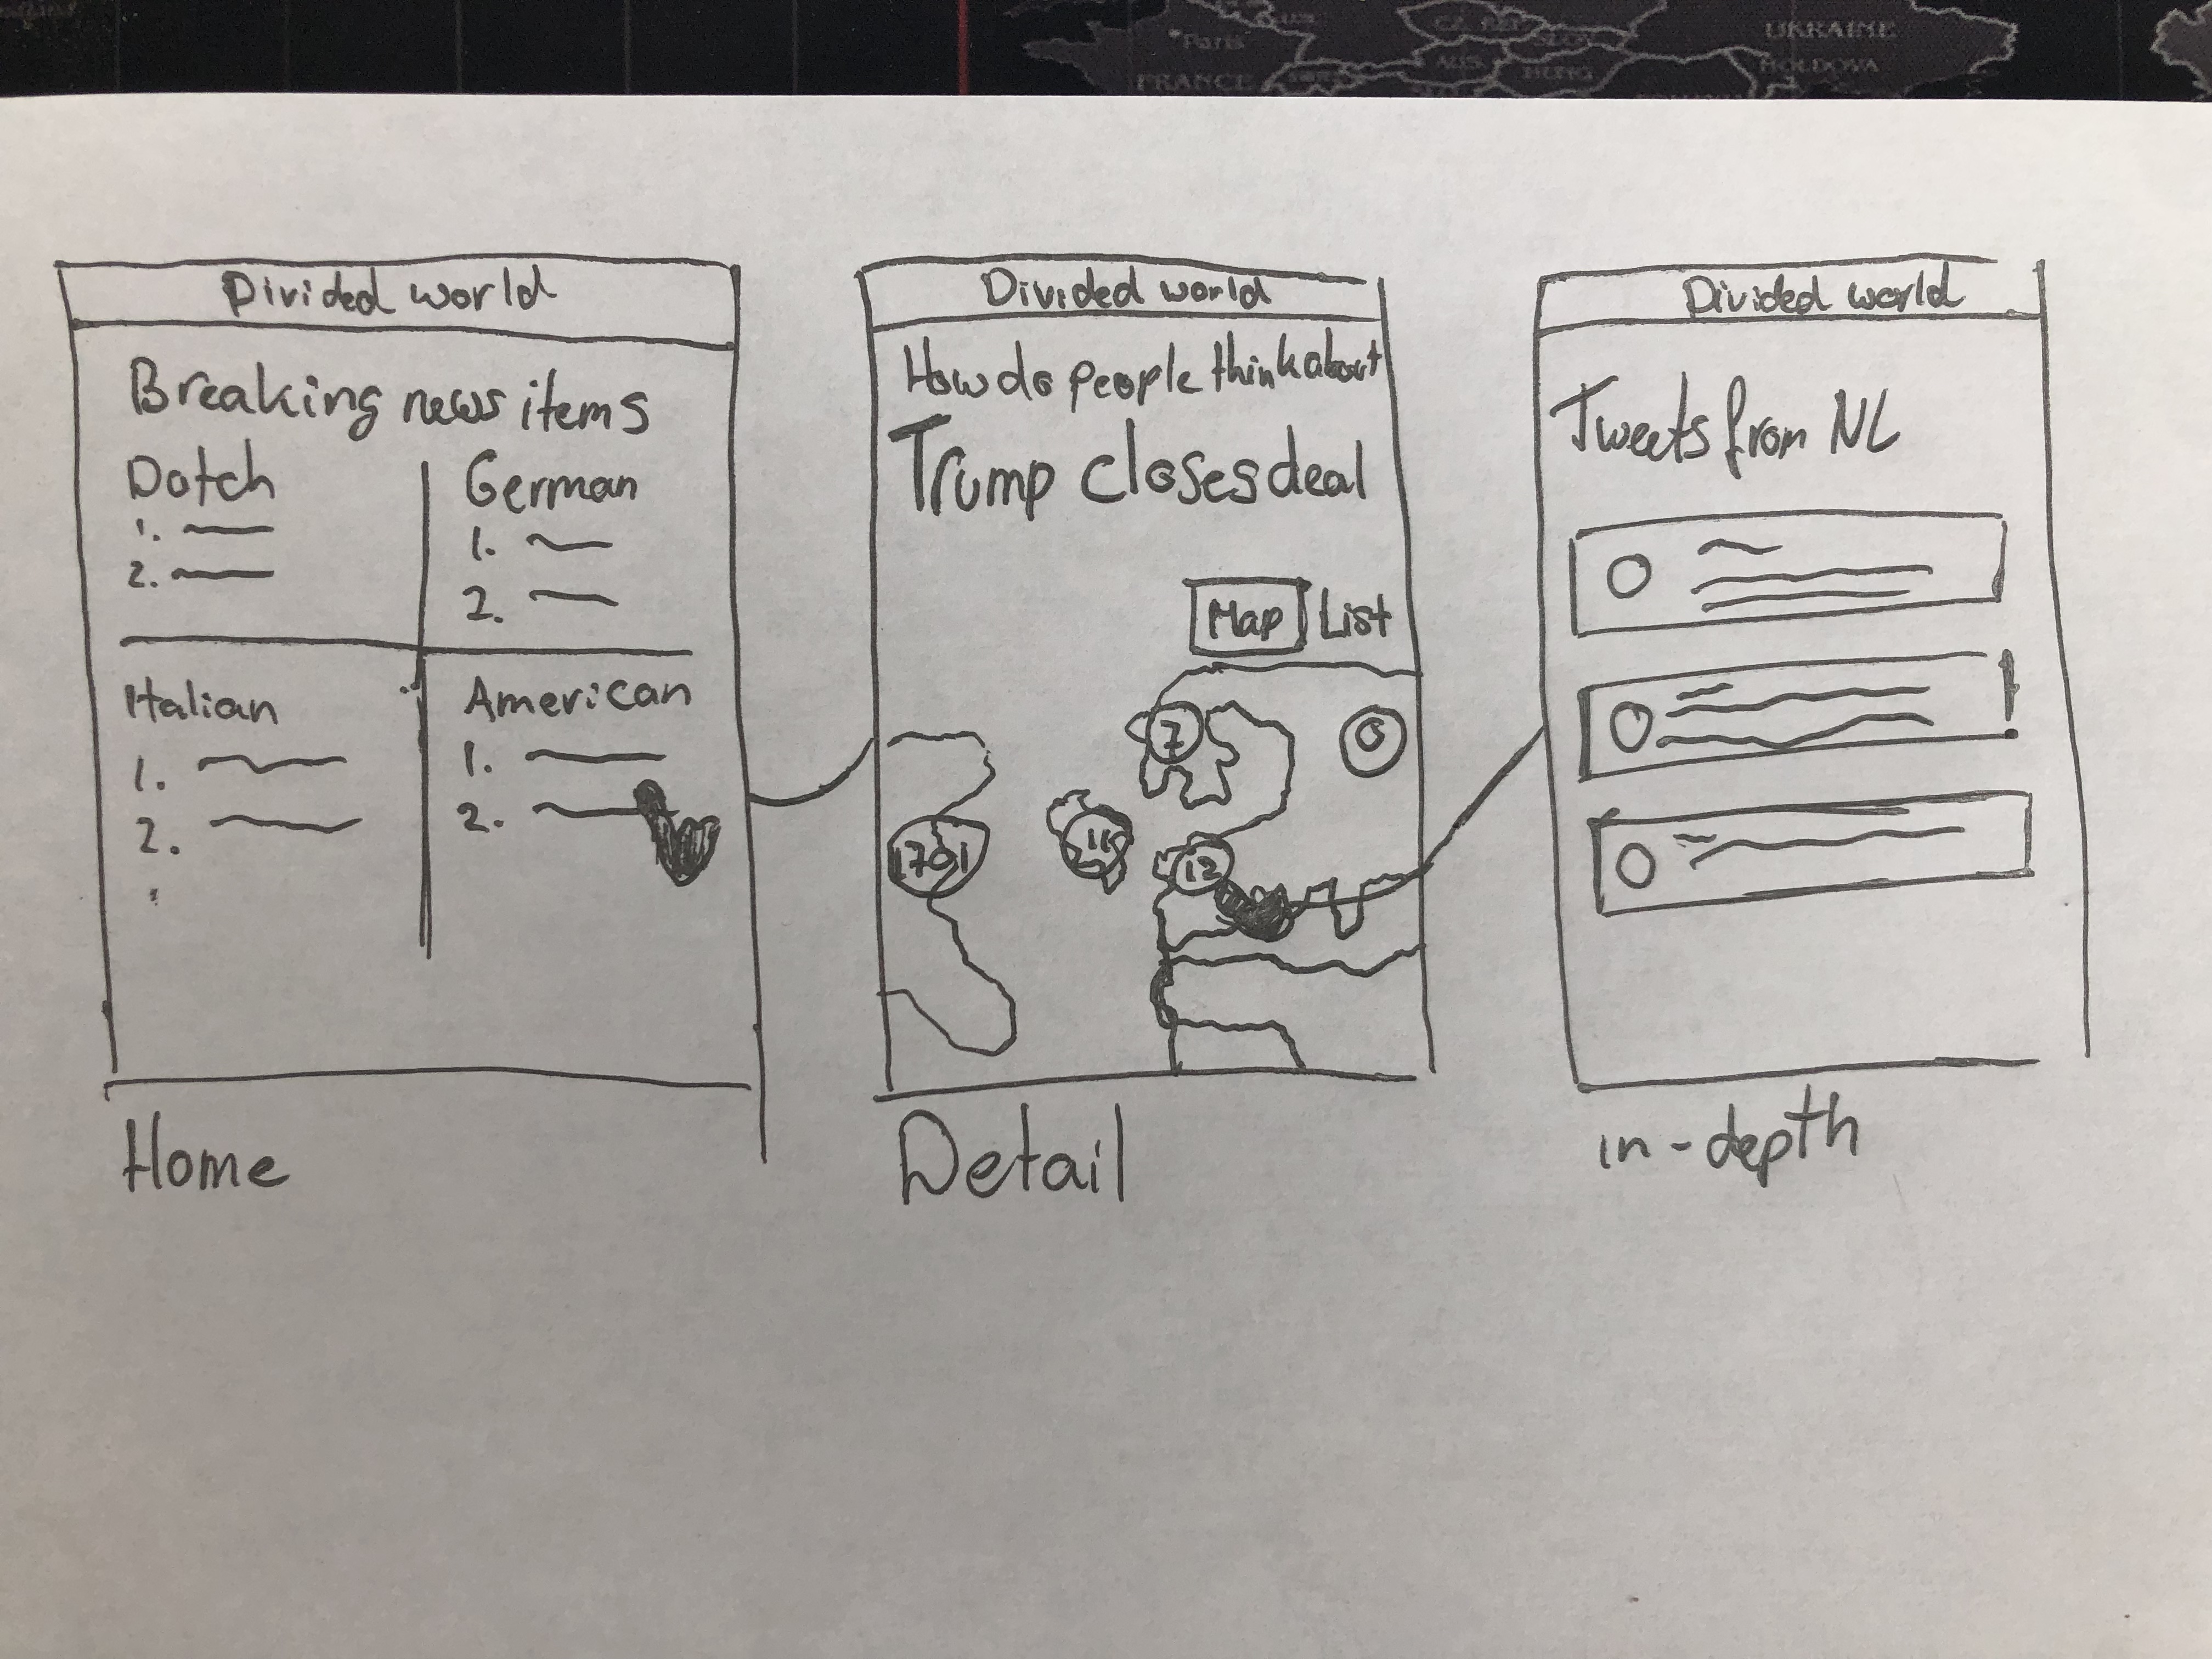 Paris
FRANCE
AUS.
HUNG
UKRAINE
MOLDOVA
Divided world
Breaking news items
Dutch
1.
2.
German
1.
2.
Italian
1.
2.
American
1.
2.
Home
Divided world
How do people think about
Trump closes deal
Map List
7
0
11
12
Detail
Divided world
Tweets from NL
in-depth